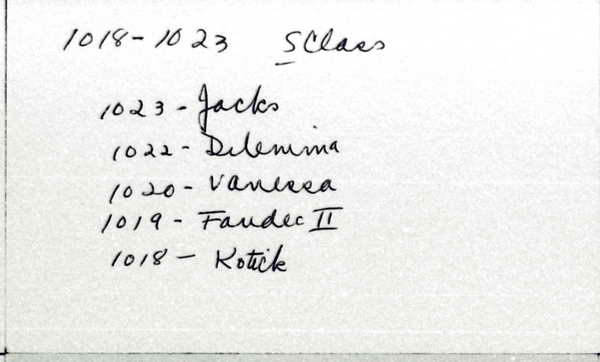 1018-1023 SClass
1023 - Jacks
1022 - Dilemma
1020 - Vanessa
1019 - Fandec II
1018 - Kotick